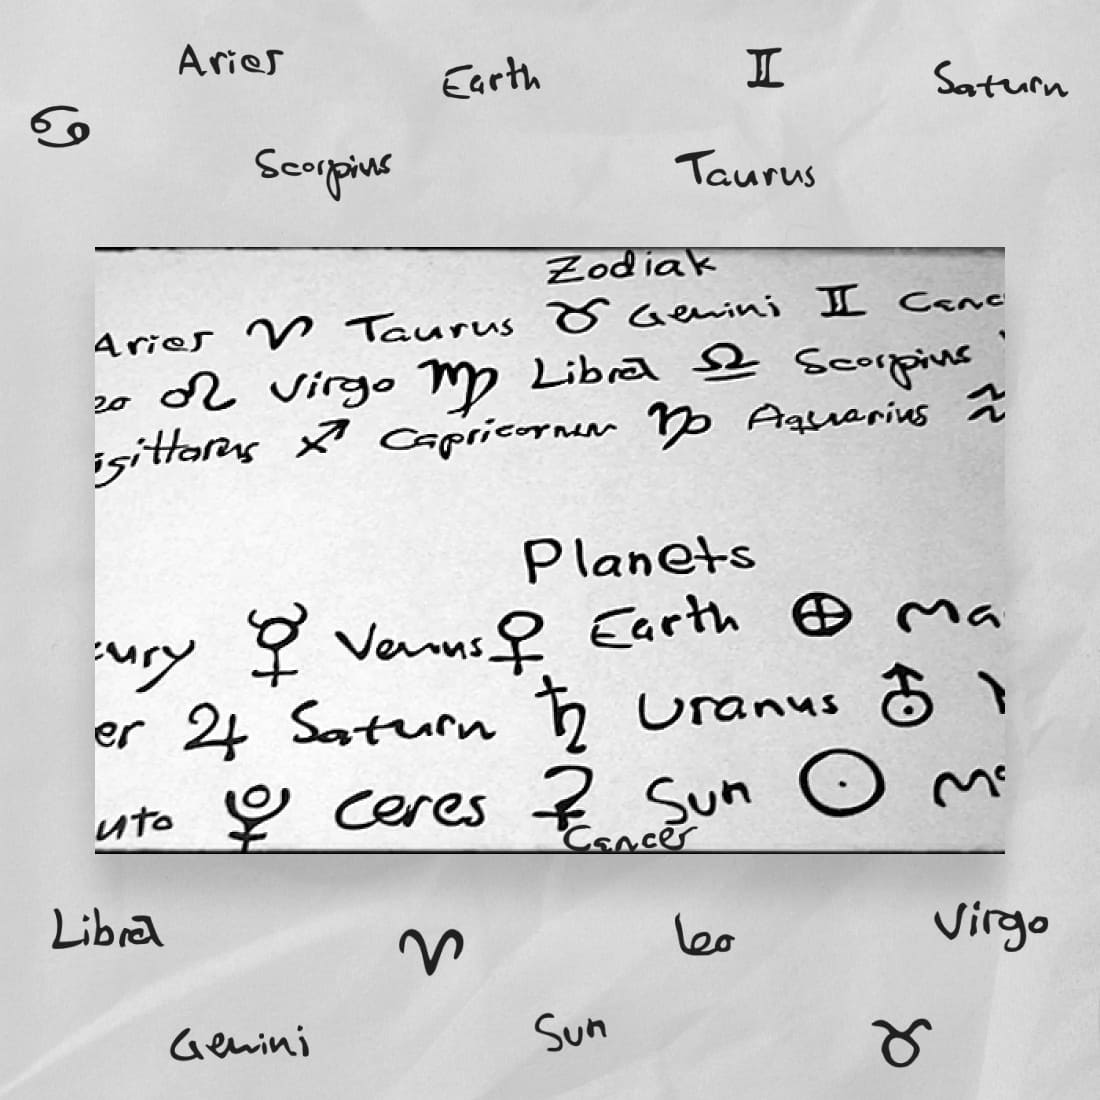 Aries Earth ♊ Saturn
♋
Scorpius Taurus
Zodiak
Aries ♈ Taurus ♉ Gemini ♊ Canc
eo ♌ Virgo ♍ Libra ♎ Scorpius
♐ Capricornus ♑ Aquarius ♒
Planets
cury ☿ Venus ♀ Earth ⊕ Ma
er ♃ Saturn ♄ Uranus ⛢
uto ♇ Ceres ⚳ Sun ☉ Mo
Cancer
Libra ♈ Leo Virgo
Gemini Sun ♉